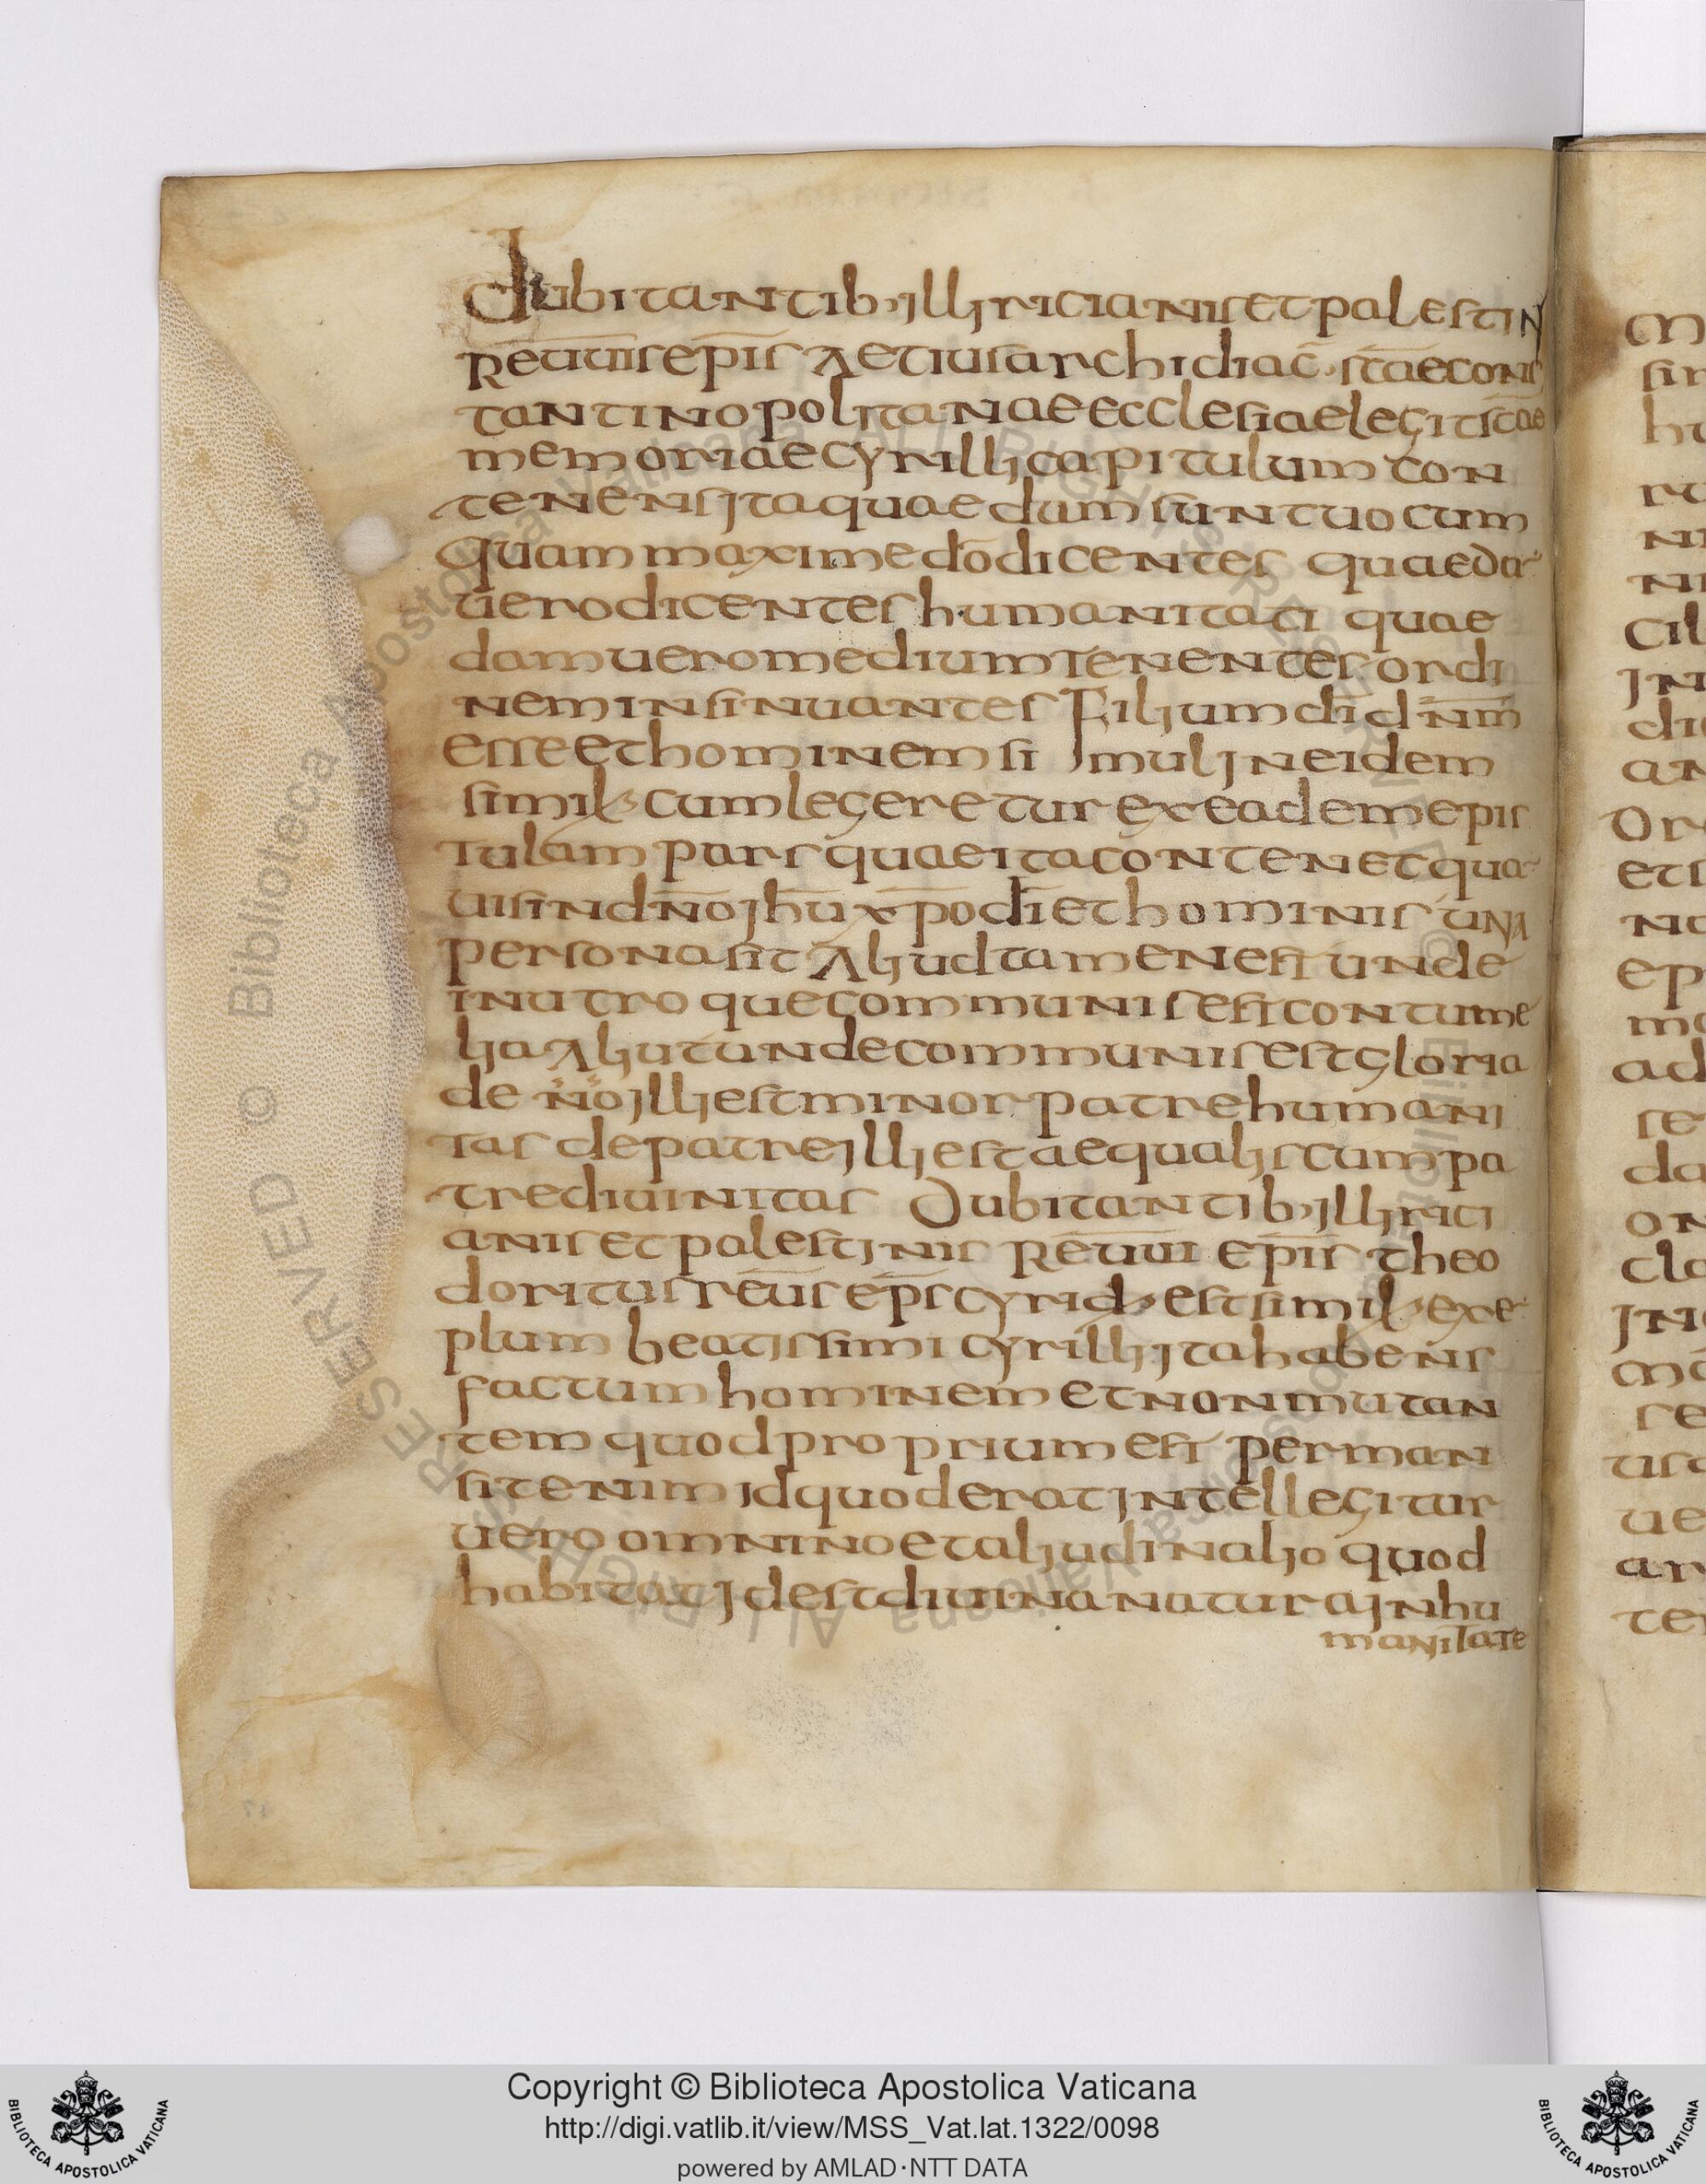 dubitantib· illiricianis et palestin
reuuis epis Aetius archidiac̄ · stae cons
tantinopolitanae ecclesiae legit stae
memoriae cyrilli capitulum con
tenens ita quaedam sunt uocum
quam maxime dō dicentes quaedā
uero dicentes humanitati quae
dam uero medium tenentes ordi
nem insinuantes Filium di dnm̄
esse et hominem simul in eidem
simil cum legeretur ex eadem epis
tulam pars quae ita contenet quā
uis in dn̄o ihū xp̄o dī et hominis una
persona sit Aliud tamen est unde
in utroque communis est contume
lia Aliut unde communis est gloria
de n̄ō illi est minor patre humani
tas de patre illi est aequalis cum pa
tre diuinitas Dubitantib· illirici
anis et palestinis Reuui epis theo
doritus reūs ep̄s cyri d est simil exē
plum beatissimi cyrilli ita habens
factum hominem et non mutan
tem quod proprium est perman
sit enim id quod erat intellegitur
uero omnino et aliud in alio quod
habitat id est diuina natura in hu
manitate
Copyright © Biblioteca Apostolica Vaticana
http://digi.vatlib.it/view/MSS_Vat.lat.1322/0098
powered by AMLAD·NTT DATA
BIBLIOTECA APOSTOLICA VATICANA
BIBLIOTECA APOSTOLICA VATICANA